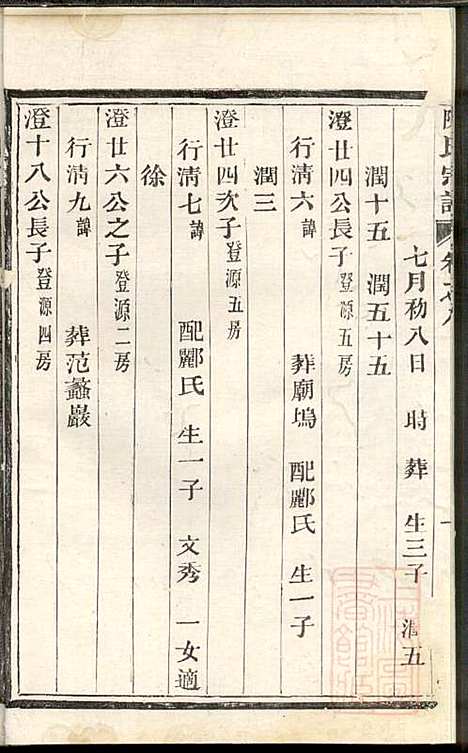 氏宗譜 卷之九
七月初八日 時 葬 生三子 五
潤十五 潤五十五
澄廿四公長子 登源五房
行清六 諱 葬廟塢 配酈氏 生一子
潤三
澄廿四次子 登源五房
行清七 諱 配酈氏 生一子 文秀 一女適
徐
澄廿六公之子 登源二房
行清九 諱 葬范蠡巖
澄十八公長子 登源四房